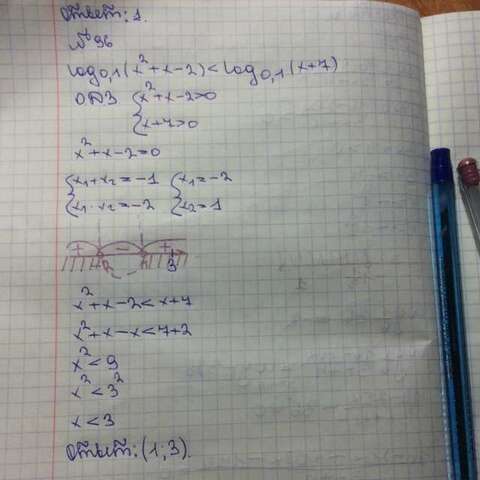 Ответ: 1.
№96
log0,1(x²+x-2)<log0,1(x+7)
ОДЗ { x²+x-2>0
x+7>0
x²+x-2=0
{ x1+x2=-1 { x1=-2
x1·x2=-2 x2=1
+ - +
3
x²+x-2<x+7
x²+x-x<7+2
x²<9
x²<3²
x<3
Ответ: (1;3)